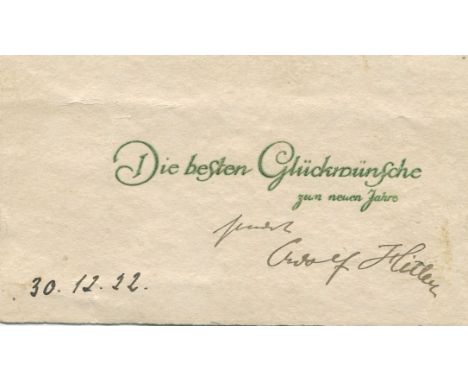 Die besten Glückwünsche
zum neuen Jahre
Adolf Hitler
30.12.22.